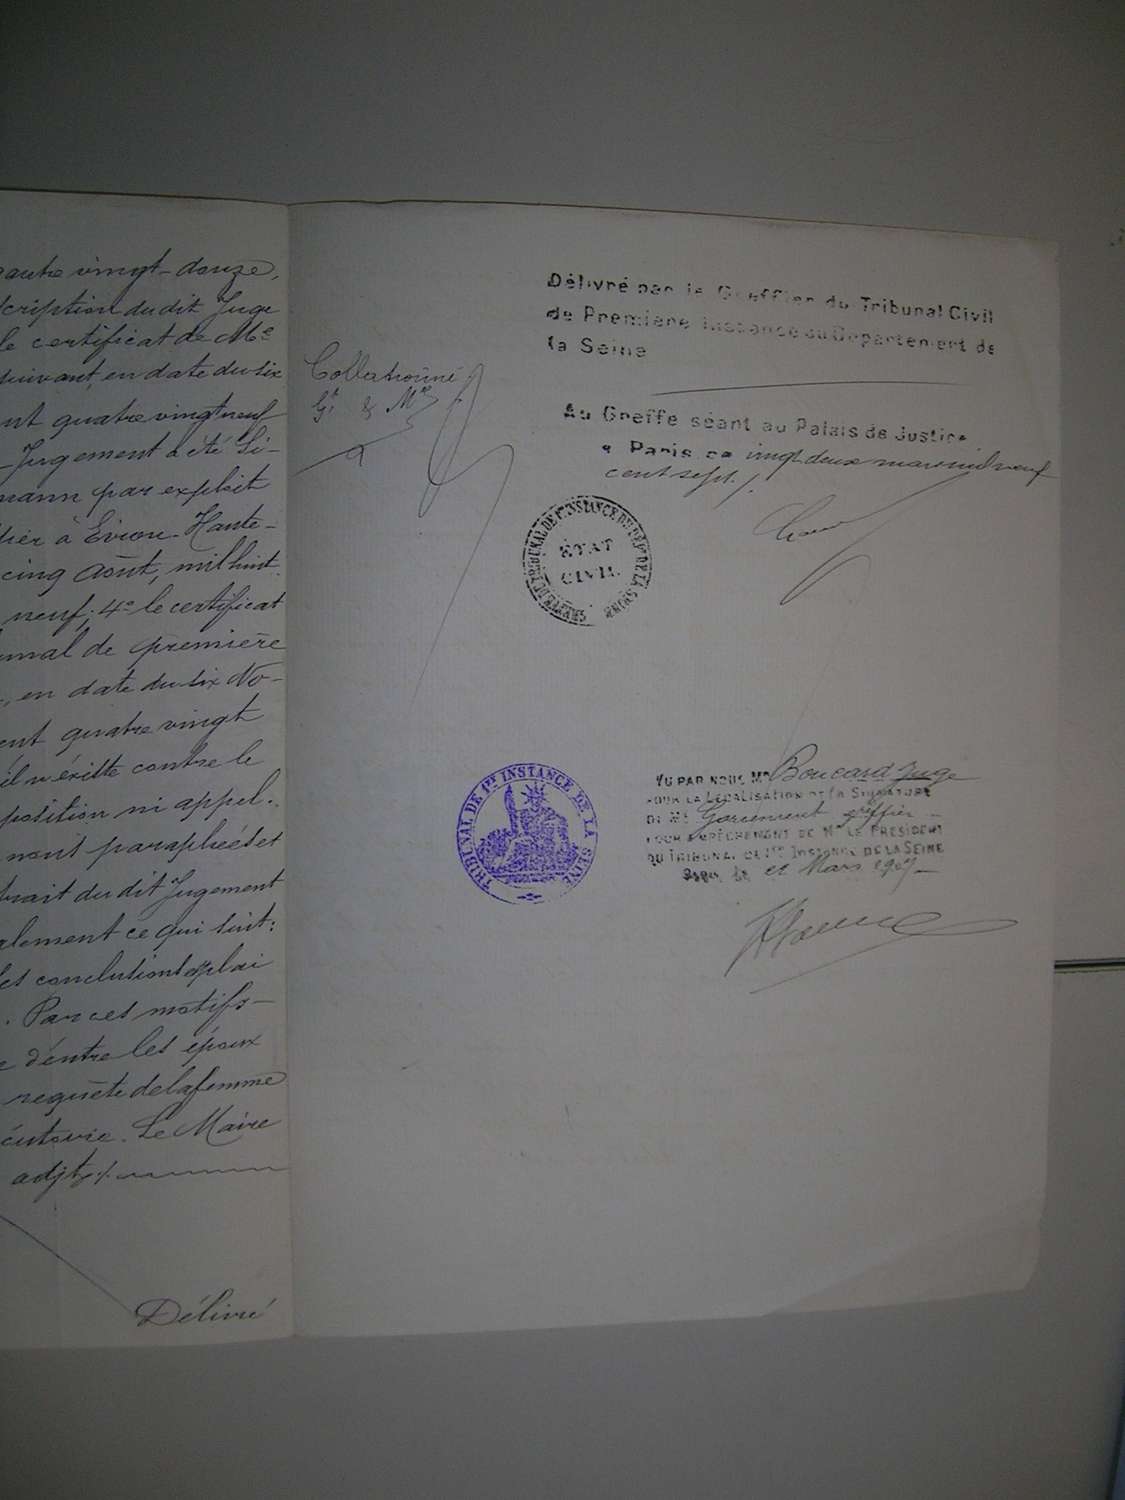 vingt-douze,
cription du dit Juge
le certificat de Me
suivant, en date du six
nt quatre vingt neuf
Jugement a été Si-
mann par exploit
à Evian-Haute-
cinq Août, mil huit
neuf; 4° le certificat
unal de première
, en date du six No-
ent quatre vingt
il n'existe contre le
position ni appel.
nont paraphées et
trait du dit Jugement
alement ce qui suit:
les conclusions
. Par ces motifs-
d'entre les époux
requête de la femme
cutoire. Le Maire
adjt
Délivré
Collationné
Délivré par le Greffier du Tribunal Civil
de Première Instance du Département de
la Seine
Au Greffe séant au Palais de Justice
à Paris ce vingt deux mars mil neuf
cent sept
GREFFE DU TRIBUNAL DE 1re INSTANCE DU DEPt DE LA SEINE
ÉTAT
CIVIL
TRIBUNAL DE 1re INSTANCE DE LA SEINE
VU PAR NOUS Mr Boucard Juge
POUR LA LÉGALISATION DE LA SIGNATURE
DE Mr greffier
POUR EMPÊCHEMENT DE Mr LE PRÉSIDENT
DU TRIBUNAL DE 1re INSTANCE DE LA SEINE
Mars 1907